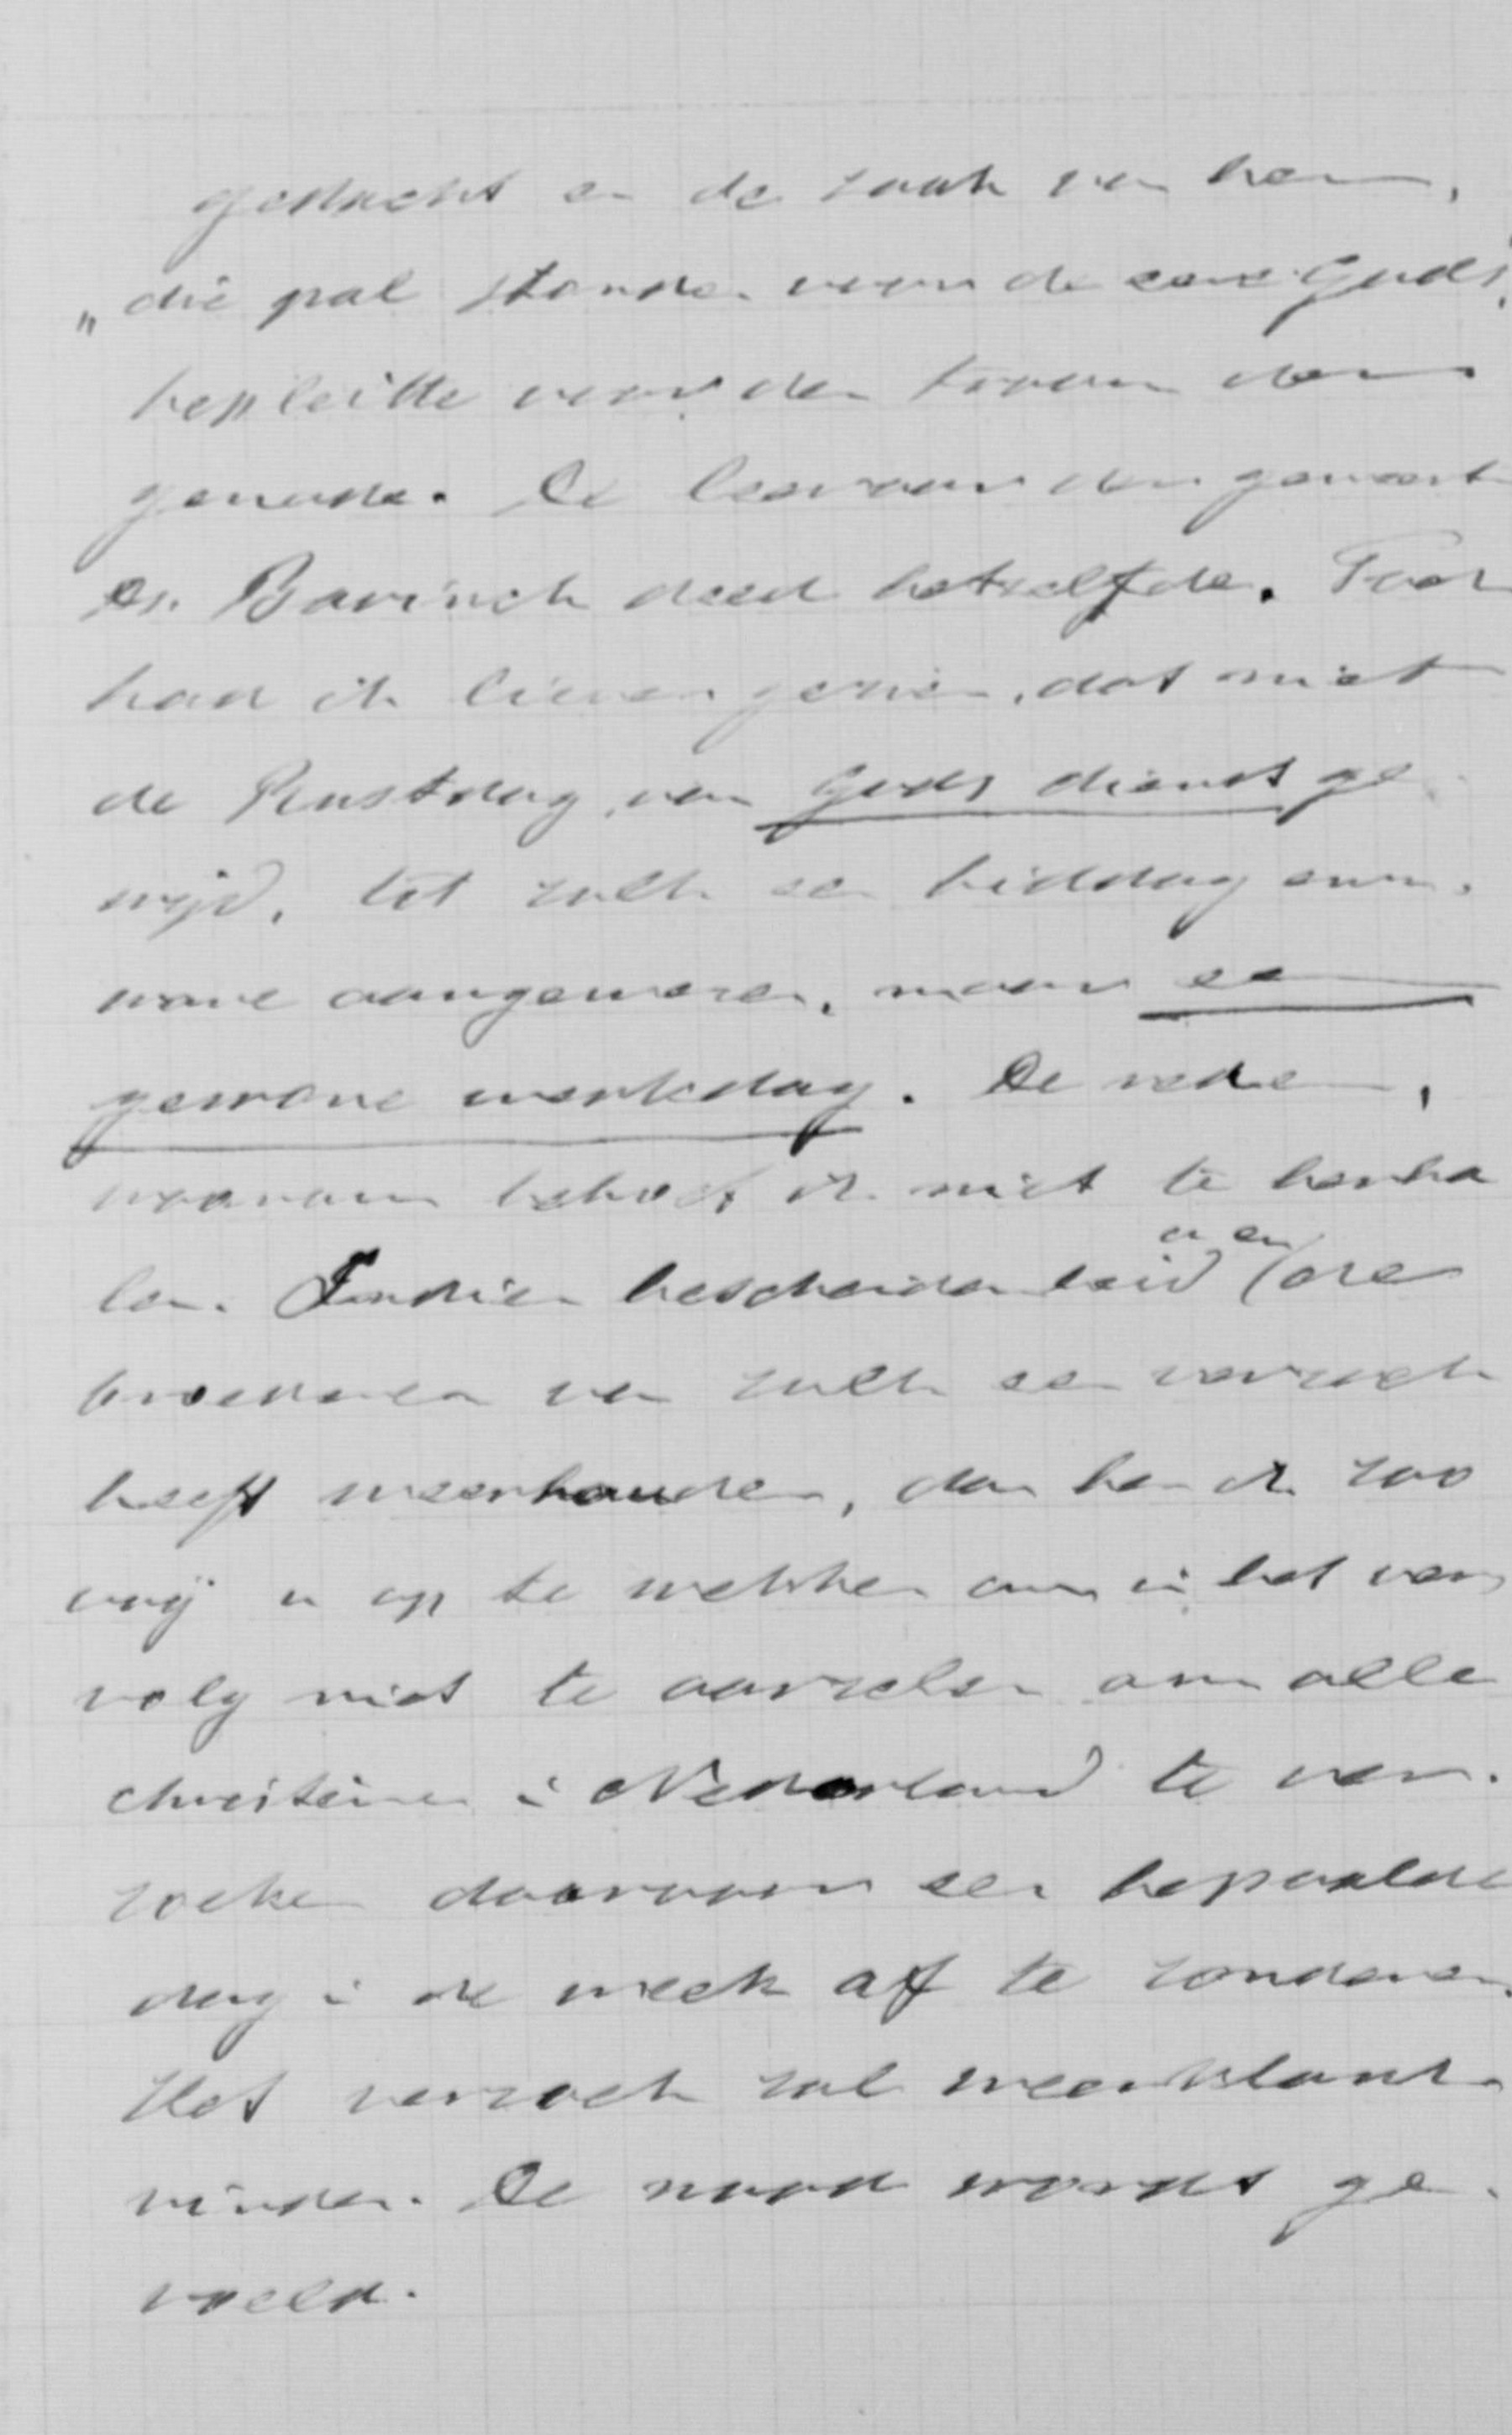 gedacht en de zaak van hen,
„die pal stonden voor de eere Gods”
bepleitte voor den troon der
genade. De leeraar der gemeent
Ds. Bavinck deed hetzelfde. Toch
had ik liever gezien, dat niet
de Rustdag, van Gods dienst ge
wijd, tot zulk een biddag
ware aangewezen, maar een
gewone werkdag. De reden,
waarom behoef ik niet te herha
len. Indien bescheidenheid u en
broederen van zulk een verzoek
heeft weerhouden, dan ben ik zoo
vrij u op te wekken om in het ver
volg niet te aarzelen om alle
christenen in Nederland te ver.
zoeken daarvoor een bepaalde
dag in de week af te zonderen.
Het verzoek zal weerklank
vinden. De nood wordt ge.
voeld.